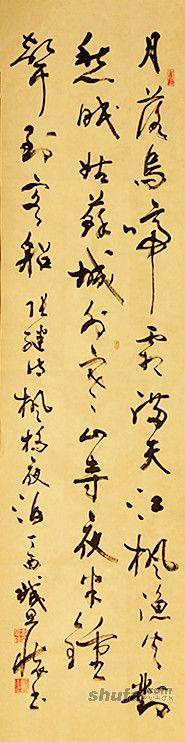 月落烏啼霜滿天江楓漁火對
愁眠姑蘇城外寒山寺夜半鐘
聲到客船張繼詩楓橋夜泊丁酉書